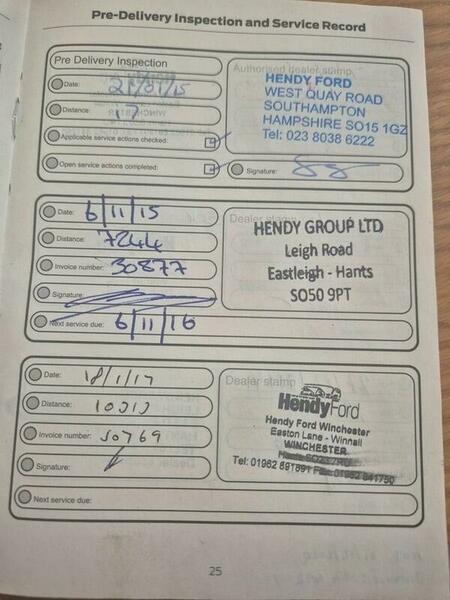 Pre-Delivery Inspection and Service Record
Pre Delivery Inspection
Date:
Distance: 17
Applicable service actions checked:
Open service actions completed:
Authorised dealer stamp
HENDY FORD
WEST QUAY ROAD
SOUTHAMPTON
HAMPSHIRE SO15 1GZ
Tel: 023 8038 6222
Signature:
Date: 6/11/15
Distance: 7244
Invoice number: 30877
Signature:
Next service due: 6/11/16
Dealer stamp
HENDY GROUP LTD
Leigh Road
Eastleigh - Hants
SO50 9PT
Date: 18/1/17
Distance:
Invoice number: 50769
Signature:
Next service due:
Dealer stamp
HendyFord
Hendy Ford Winchester
Easton Lane - Winnall
WINCHESTER
Tel: 01962 891891 Fax: 01962 841750
25